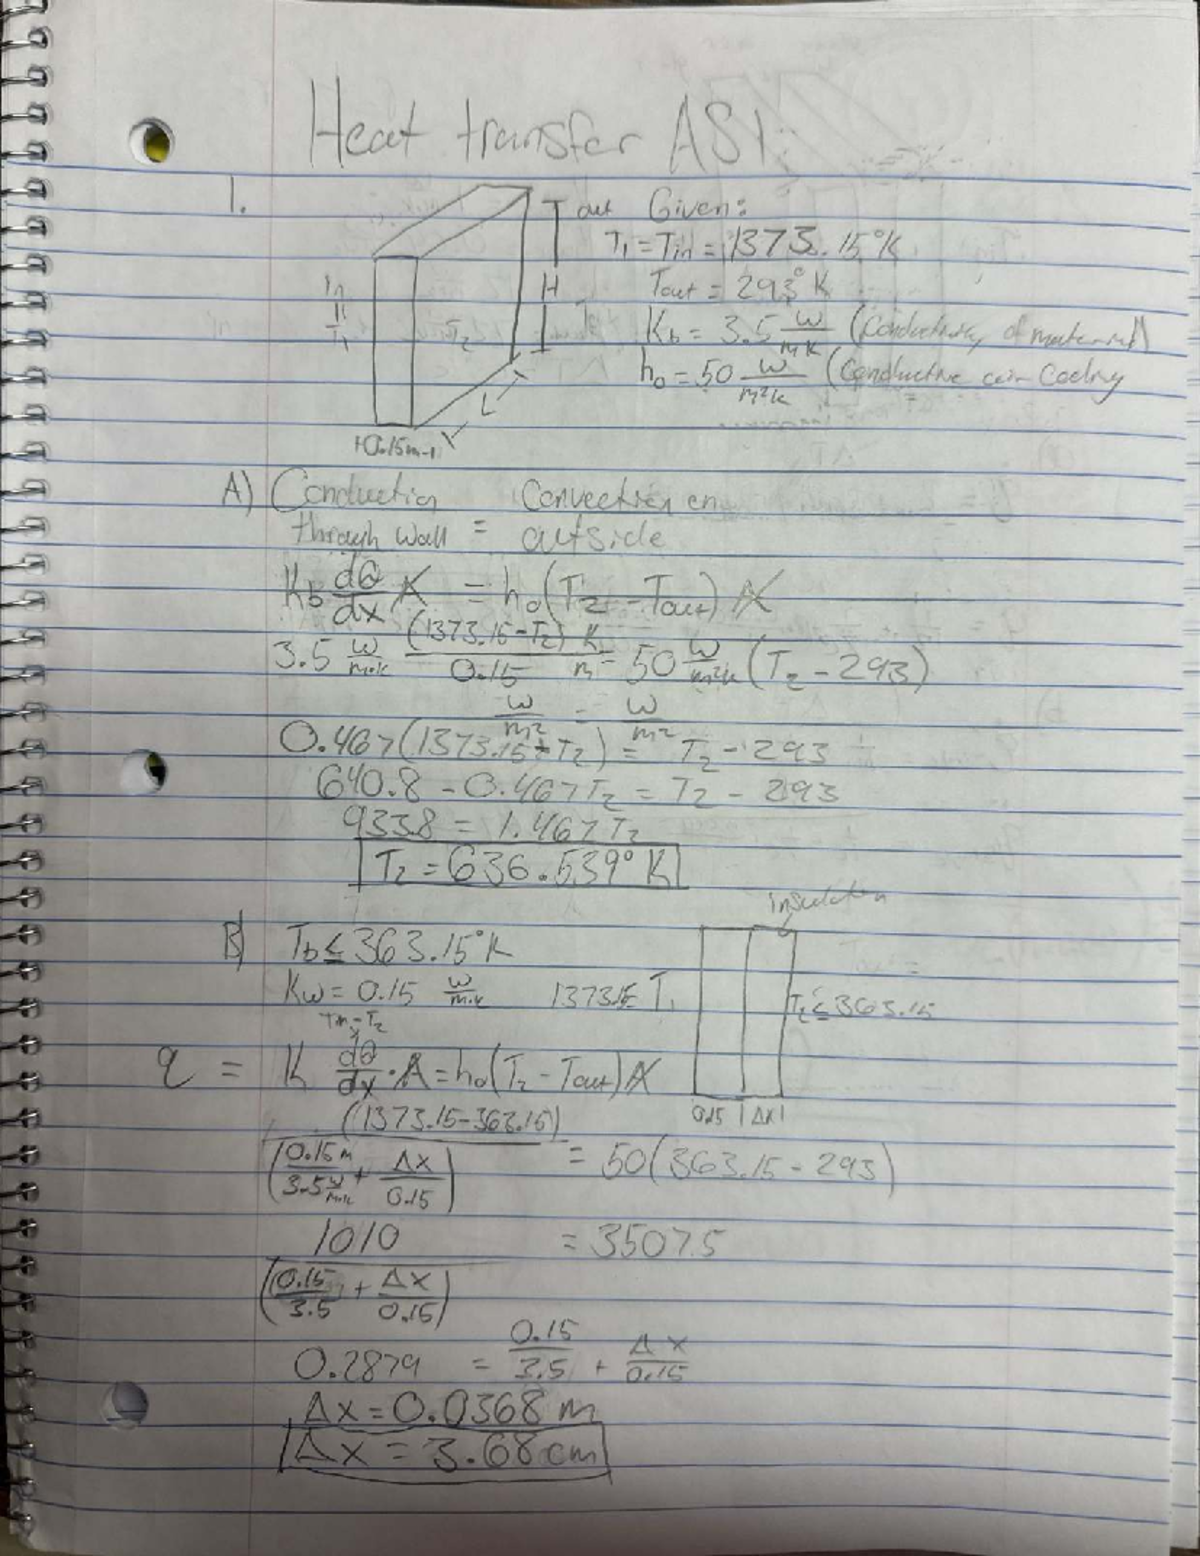 Heat transfer AS1:
1.
Tout Given:
T₁ = Tin = 1373.15°K
Tout = 293°K
In = T₁
T₂
H
L
Kb = 3.5 W/mK (Conductivity of material)
h₀ = 50 W/m²K (Conductive air Cooling
0.15m
A) Conduction through wall = Convection on outside
Kb dθ/dx A = h₀(T₂ - Tout) A
3.5 W/m·K (1373.15 - T₂)/0.15 K/m = 50 W/m²K (T₂ - 293)
W/m² = W/m²
0.467(1373.15 - T₂) = T₂ - 293
640.8 - 0.467T₂ = T₂ - 293
933.8 = 1.467T₂
T₂ = 636.539°K
insulation
B) Tb ≤ 363.15°K
Kw = 0.15 W/m·K
1373.15 = T₁
T₂ ≤ 363.15
Tin - T₂
q = K dθ/dx · A = h₀(T₂ - Tout) A
0.15 | Δx |
(1373.15 - 363.15) / (0.15m/3.5 W/m·K + Δx/0.15) = 50(363.15 - 293)
1010 / (0.15/3.5 + Δx/0.15) = 3507.5
0.2879 = 0.15/3.5 + Δx/0.15
Δx = 0.0368 m
Δx = 3.68 cm